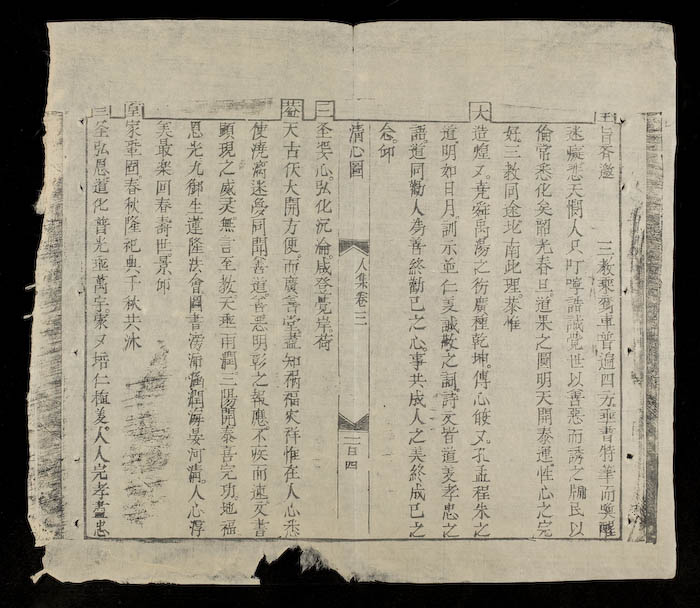 玉旨齊邀 三教乘鸞車普遍四方垂書特筆而喚醒
迷癡悲天憫人只叮嚀誥誡覺世以善惡而誘之牖民以
倫常悉化矣韶光春旦道果之圓明天開泰運性心之完
好三教同途北南此理恭惟
大造煌又堯舜禹湯之衍廣種乾坤傳心皎又孔孟程朱之
道明如日月訓示並仁義誠敬之詞詩文皆道義孝忠之
語道同勸人為善終勸已之心事共成人之美終成已之
念仰
清心圖
人集卷三 一百四
三圣婆心弘化沉淪咸登覺岸荷
蓋天古佚大開方便而廣善堂盡知禍福灾祥惟在人心悉
使澆漓迷夢同聞善道善惡明彰之報應不疾而速文書
顯現之威灵無言至教天垂雨潤三陽開泰喜完功地福
恩光九御生蓮隆法會圖書滂沛涵潤海晏河清人心淳
美最樂回春壽世景仰
皇家鞏固春秋隆祀典千秋共沐
三圣弘恩道化普光垂萬宇家又培仁植義人人完孝盡忠